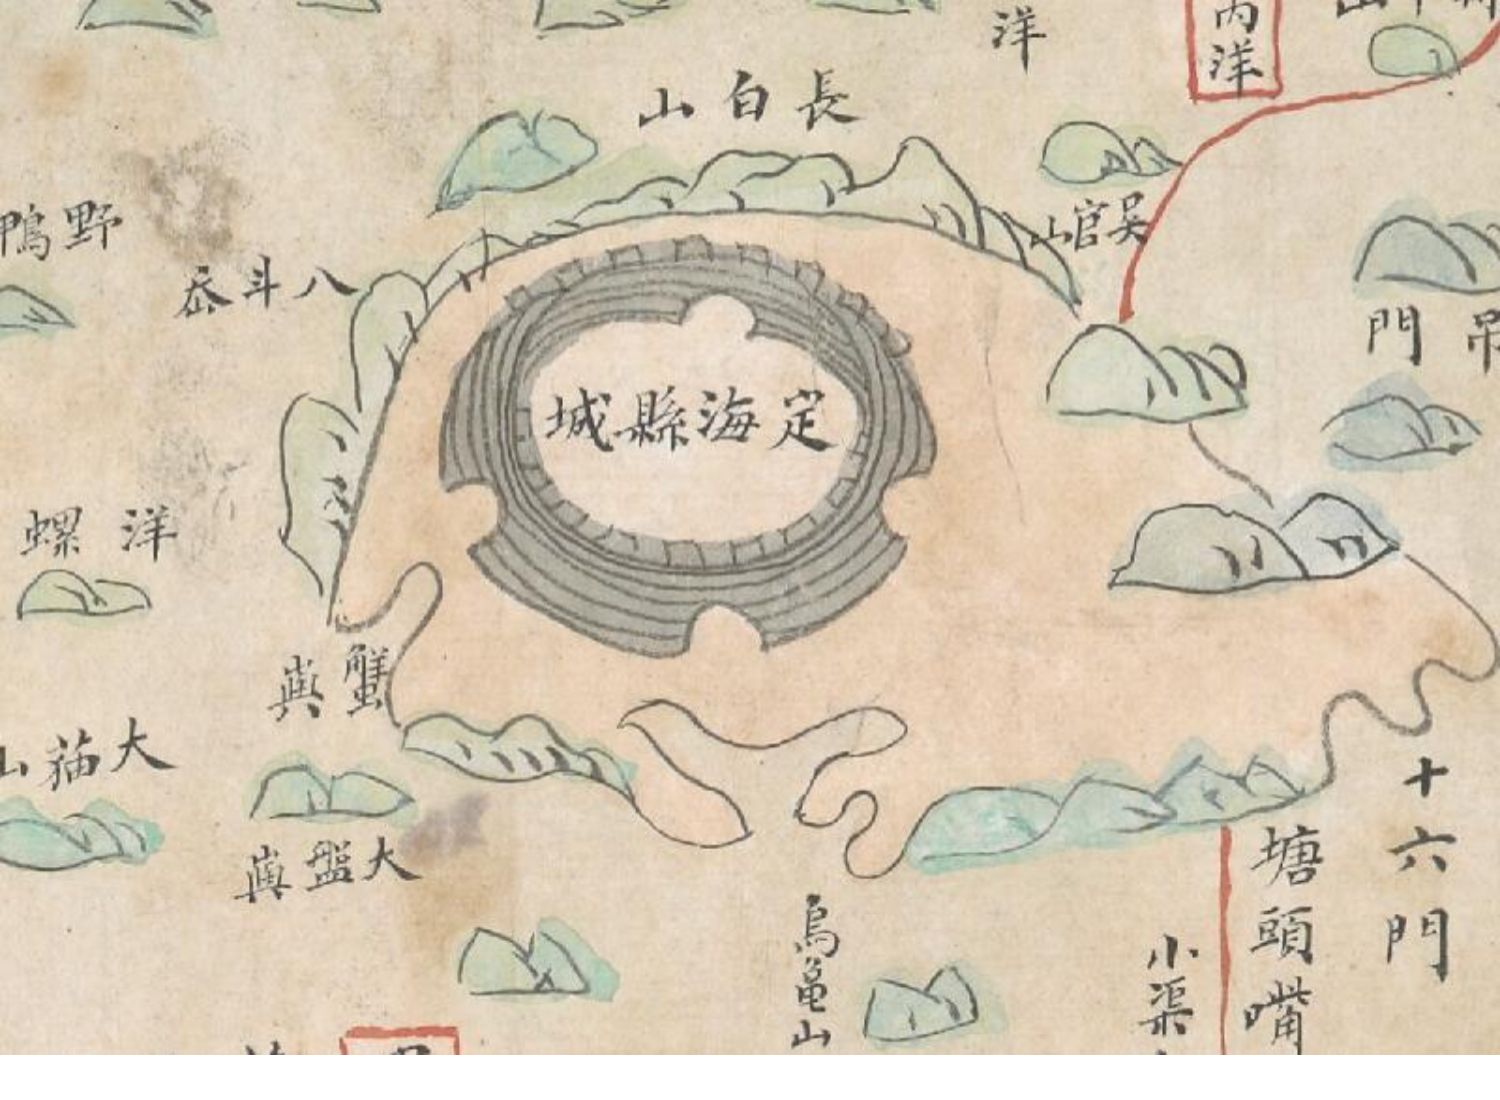 內洋
洋
長白山
吳官山
野鴨
八斗岙
門
吊
定海縣城
洋螺
蟹嶼
大猫山
大盤嶼
十六門
塘頭嘴
小渠
烏龜山